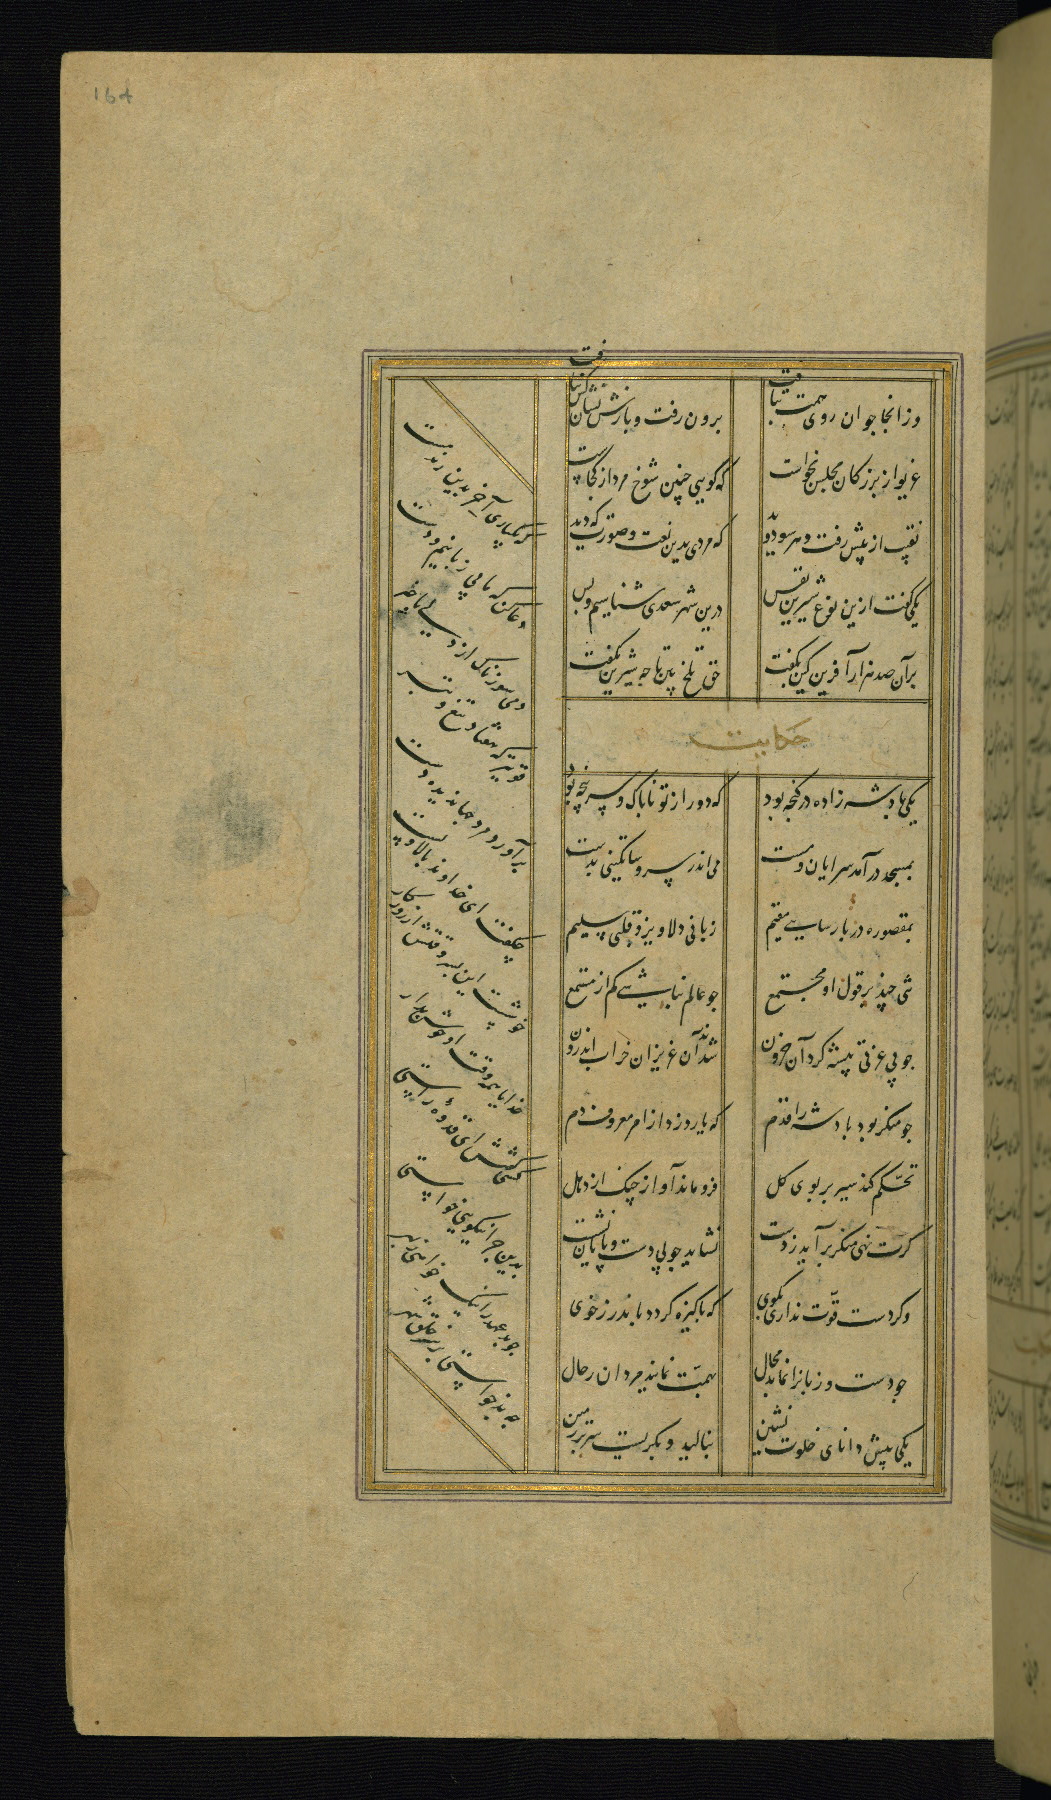 وزانجا جوان روی همت بتافت
برون رفت و بازش نشان کس نیافت
غریو از بزرکان مجلس بخواست
که کویی چنین شوخ مرد از کجاست
نقیب از پیش رفت و هر سو دوید
که مردی بدین نعت و صورت که دید
یکی کفت ازین نوع شیرین نفس
درین شهر سعدی شناسیم و بس
بر آن صد هزار آفرین کین بکفت
حق تلخ بین تا چه شیرین بکفت
حکایت
یکی پادشه زاده در کنجه بود
که دور از تو ناپاک و سرپنجه بود
بمسجد در آمد سرایان و مست
می اندر سر و ساتکینی بدست
بمقصوره در پارسایی مقیم
زبانی دلاویز و قلبی سلیم
تنی چند بر قول او مجتمع
چو عالم نباشی کم از مستمع
چو بی عزتی پیشه کرد آن حرون
شدند آن عزیزان خراب اندرون
چو منکر بود پادشه را قدم
که یارد زد از امر معروف دم
تحکّم کند سیر بر بوی کل
فرو ماند آواز چنک از دهل
کرت نهی منکر برآید ز دست
نشاید چو بی دست و پایان نشست
وکر دست قوّت نداری بکوی
که پاکیزه کردد باندرز خوی
چو دست و زبانرا نماند مجال
بهمّت نمایند مردان رجال
یکی پیش دانای خلوت نشین
بنالید و بکریست سر بر زمین
که یکباری آخر بدین رند مست
دعا کن که ما بی زبانیم و دست
دمی سوزناک از دلی باخبر
قوی تر که هفتاد تیغ و تبر
برآورد مرد جهاندیده دست
چکفت ای خداوند بالا و پست
خوشست این پسر وقتش از روزکار
خدایا همه وقت او خوش بدار
کسی کفتش ای قدوهٔ راستی
بدین بد چرا نیکویی خواستی
چو بد عهد را نیک خواهی ز بهر
چه بد خواستی بر سر خلق شهر